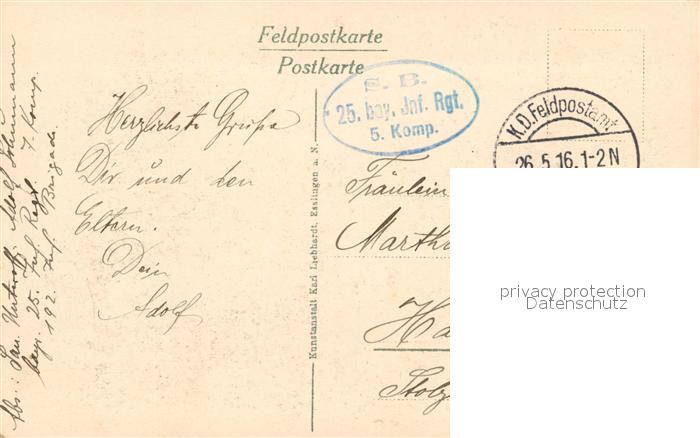 Feldpostkarte
Postkarte
S. B.
25. bay. Inf. Rgt.
5. Komp.
K.D. Feldpostamt
26.5.16.1-2N
Herzlichste Grüße
Dir und den
Eltern.
Dein
Adolf
Abs.: San. Unteroff. Adolf
bayr. 25. Inf. Regt. 7. Komp.
192. Inf. Brigade.
Kunstanstalt Karl Liebhardt, Esslingen a. N.
Fräulein
Marth
Ha
Stolz
privacy protection
Datenschutz